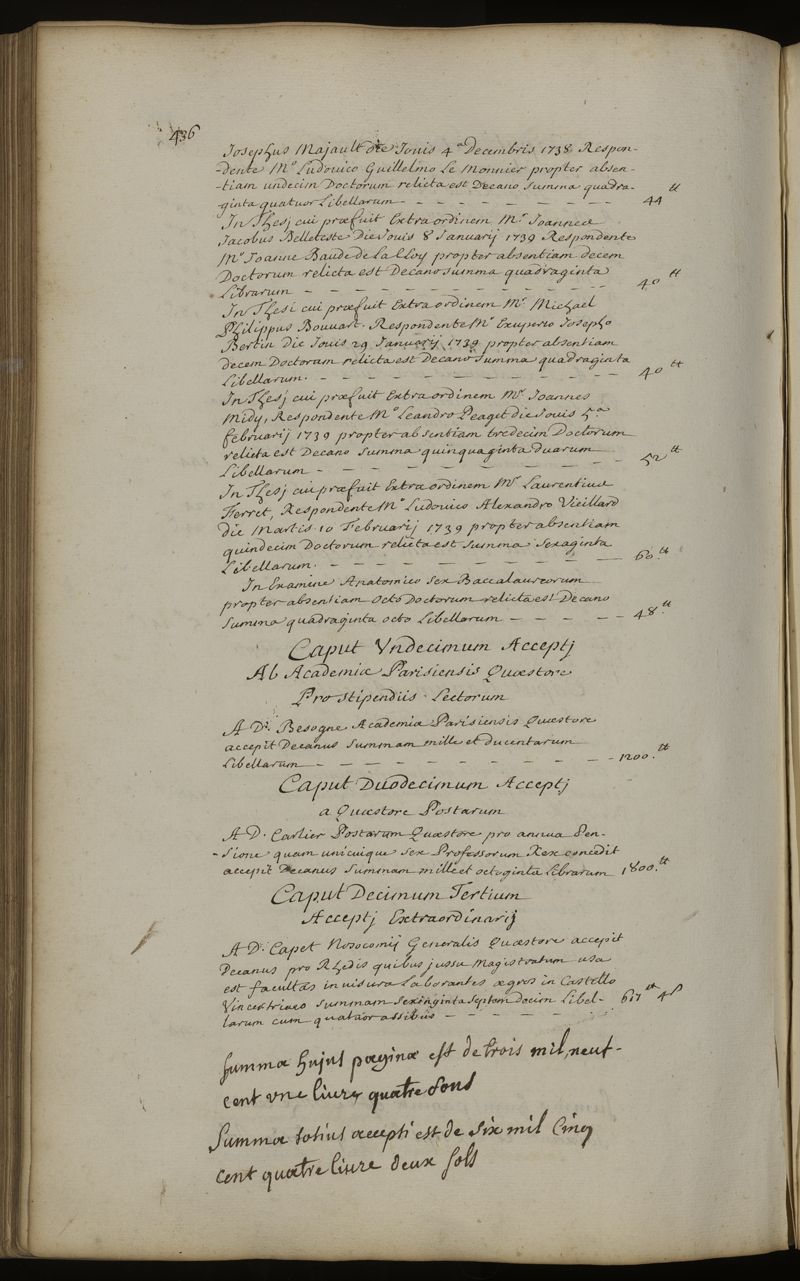 436
Josephus Majault die Jouis 4.a Decembris 1738 Respon-
-dente M.o Ludouico Guillelmo Le Monnier propter absen-
-tiam undecim Doctorum relicta est Decano Summa quadra-
ginta quatuor Libellarum - - - - - - - - - 44 ₶
In Thesj cui præfuit Extra ordinem M.r Joannes
Jacobus Belleteste Die Jouis 8 Januarij 1739 Respondente
M.o Joanne Baude de la Cloy propter absentiam decem
Doctorum relicta est Decano Summa quadraginta
Librarum - - - - - - - - - - - - - 40 ₶
In Thesi cui præfuit Extra ordinem M.r Michael
Philippus Bouuart. Respondente M.o Exuperio Josepho
Bertin Die Jouis 29 Januarij 1739 propter absentiam
decem Doctorum relicta est Decano Summa quadraginta
Libellarum. - - - - - - - - - - - - 40 ₶
In Thesj cui præfuit Extra ordinem M.r Joannes
Midy, Respondente M.o Leandro Peaget die Jouis 5.a
februarij 1739 propter absentiam tredecim Doctorum
relicta est Decano Summa quinquaginta duarum
Libellarum - - - - - - - - - - - - 52 ₶
In Thesj cui præfuit Extra ordinem M.r Laurentius
Ferret, Respondente M.o Ludouico Alexandro Vieillard
die Martis 10 Februarij 1739 propter absentiam
quindecim Doctorum relicta est Summa Sexaginta
Libellarum. - - - - - - - - - - - - 60 ₶
In Examine Anatomico Sex Baccalaureorum
propter absentiam octo Doctorum relicta est Decano
Summa quadraginta octo Libellarum - - - - - 48 ₶
Caput Vndecimum Acceptj
Ab Academiæ Parisiensis Quæstore
Pro Stipendiis Lectorum
A D.o Besogne Academiæ Parisiensis Quæstore
accepit Decanus Summam mille et ducentarum
Libellarum - - - - - - - - - - - 1200. ₶
Caput Duodecimum Acceptj
a Quæstore Postarum
A D. Carlier Postarum Quæstore pro annua Pen-
-sione quam unicuique Sex Professorum Rex concedit
accepit Decanus Summam mille et octoginta Librarum 1800. ₶
Caput Decimum Tertium
Acceptj Extraordinarij
A D.o Capet Nosocomij Generalis Quæstore accepit
Decanus pro Rhedis quibus jussu Magistratum usa
est facultas inuisura Laborantes ægros in Castello
Vincestriaeo Summam Sexinginta Septem decim Libel-
larum cum quatuor assibus - - - - - - - 617 ₶ 4 s
Summa hujus paginæ est de trois mil, neuf-
cent vne liures quatre sous
Summa totius accepti est de Six mil Cinq
cent quatre livre deux sols